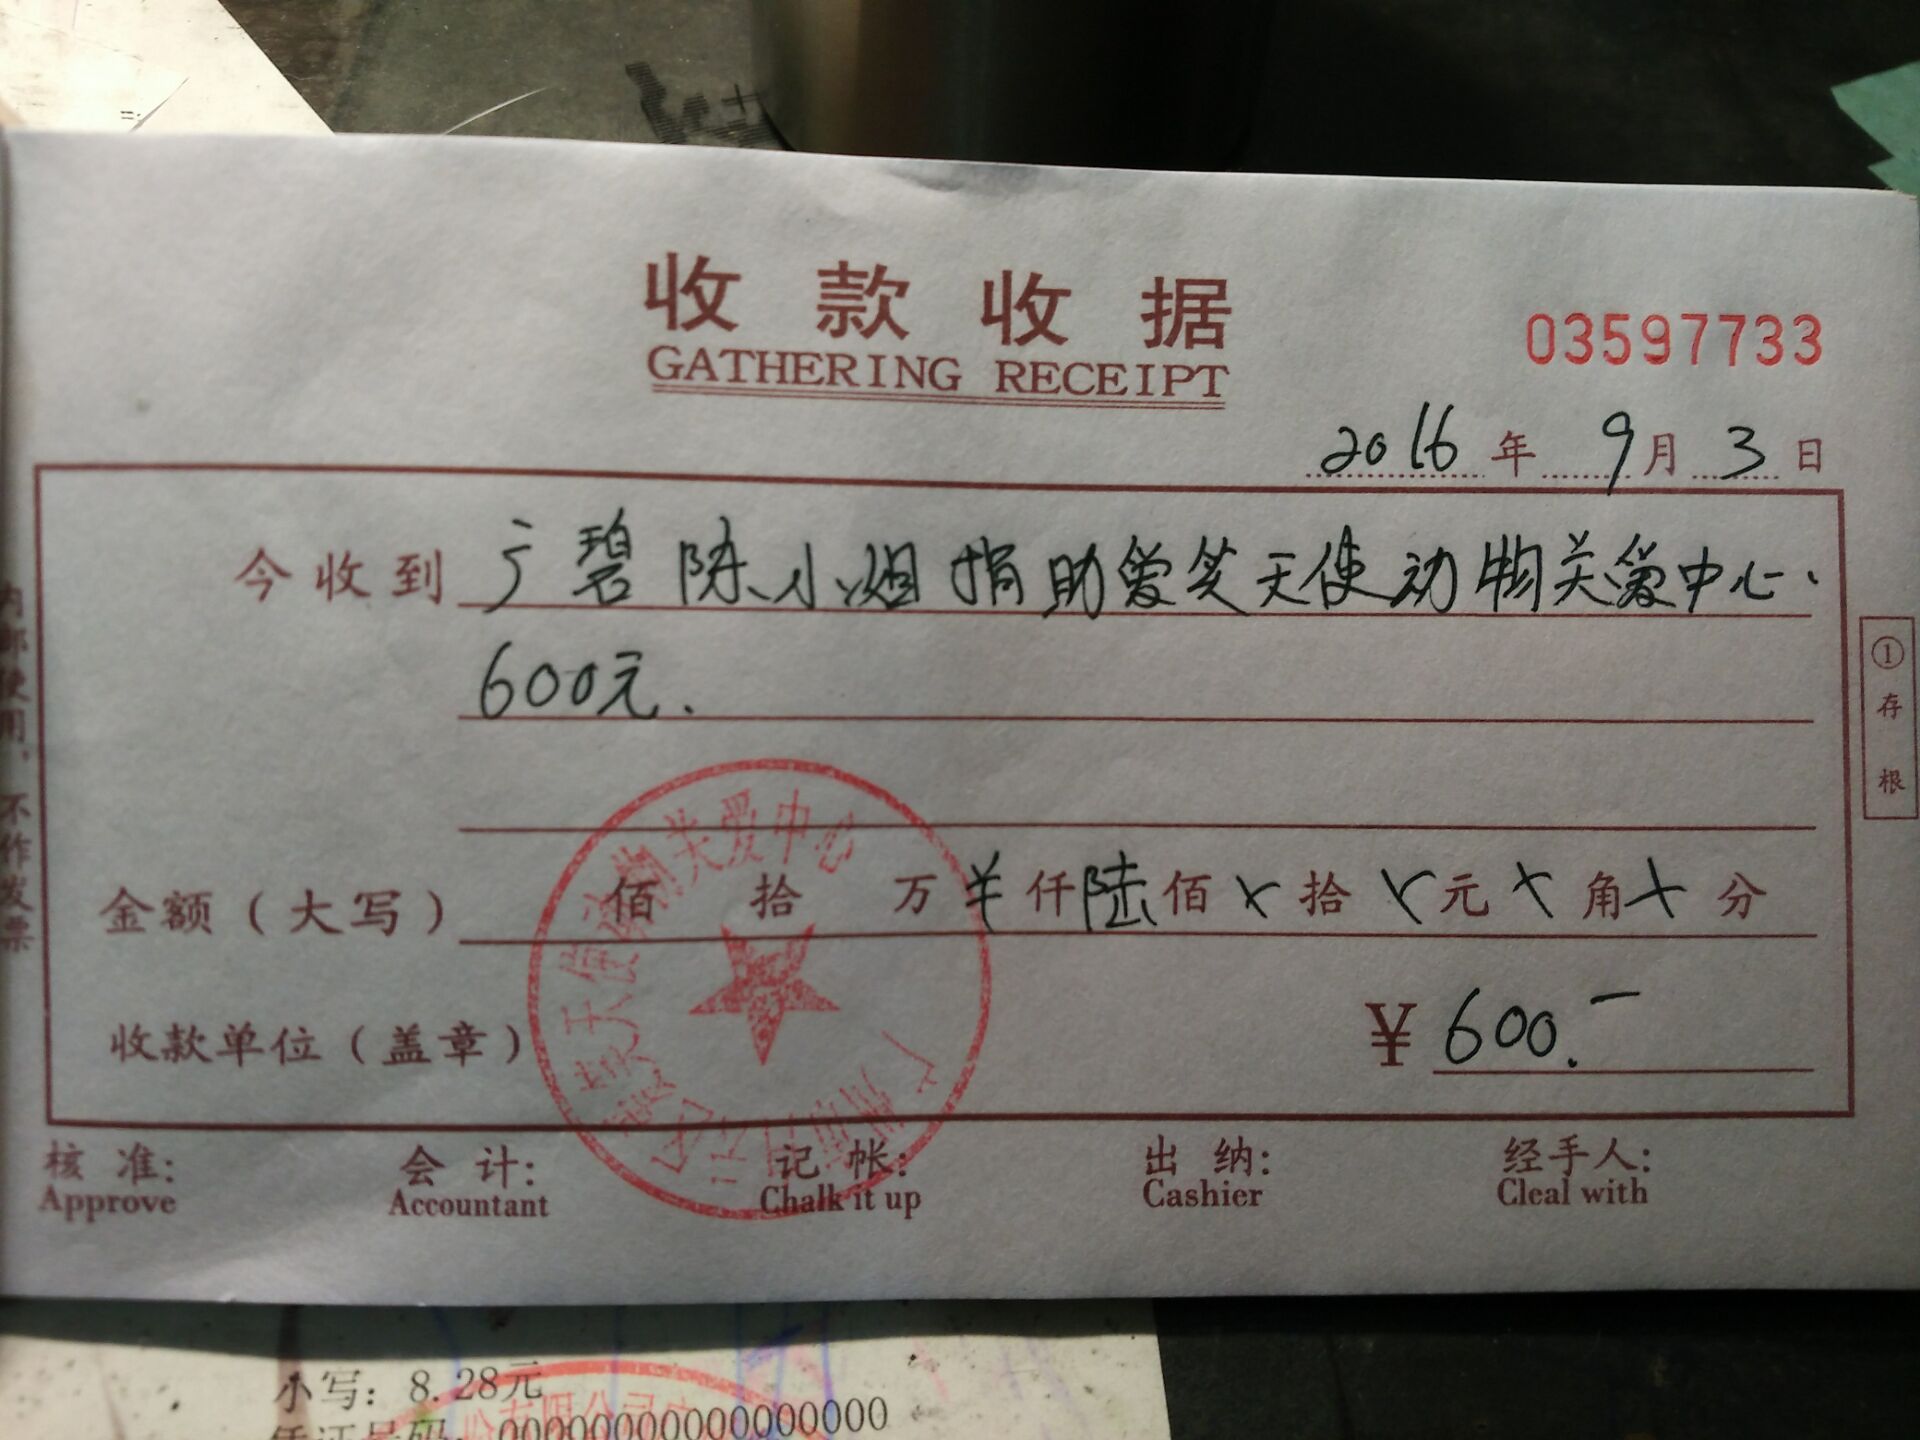 收款收据
GATHERING RECEIPT
03597733
2016年9月3日
今收到广碧陈小姐捐助爱笑天使动物关爱中心.
600元.
金额(大写) 佰 拾 万 ¥ 仟 陆 佰 x 拾 x 元 x 角 x 分
收款单位(盖章)
¥ 600.-
天使动物关爱中心
核 准: 会 计: 记 帐: 出 纳: 经手人:
Approve Accountant Chalk it up Cashier Cleal with
①存根
内部使用,不作发票
小写: 8.28元
凭证号码: 00000000000000000